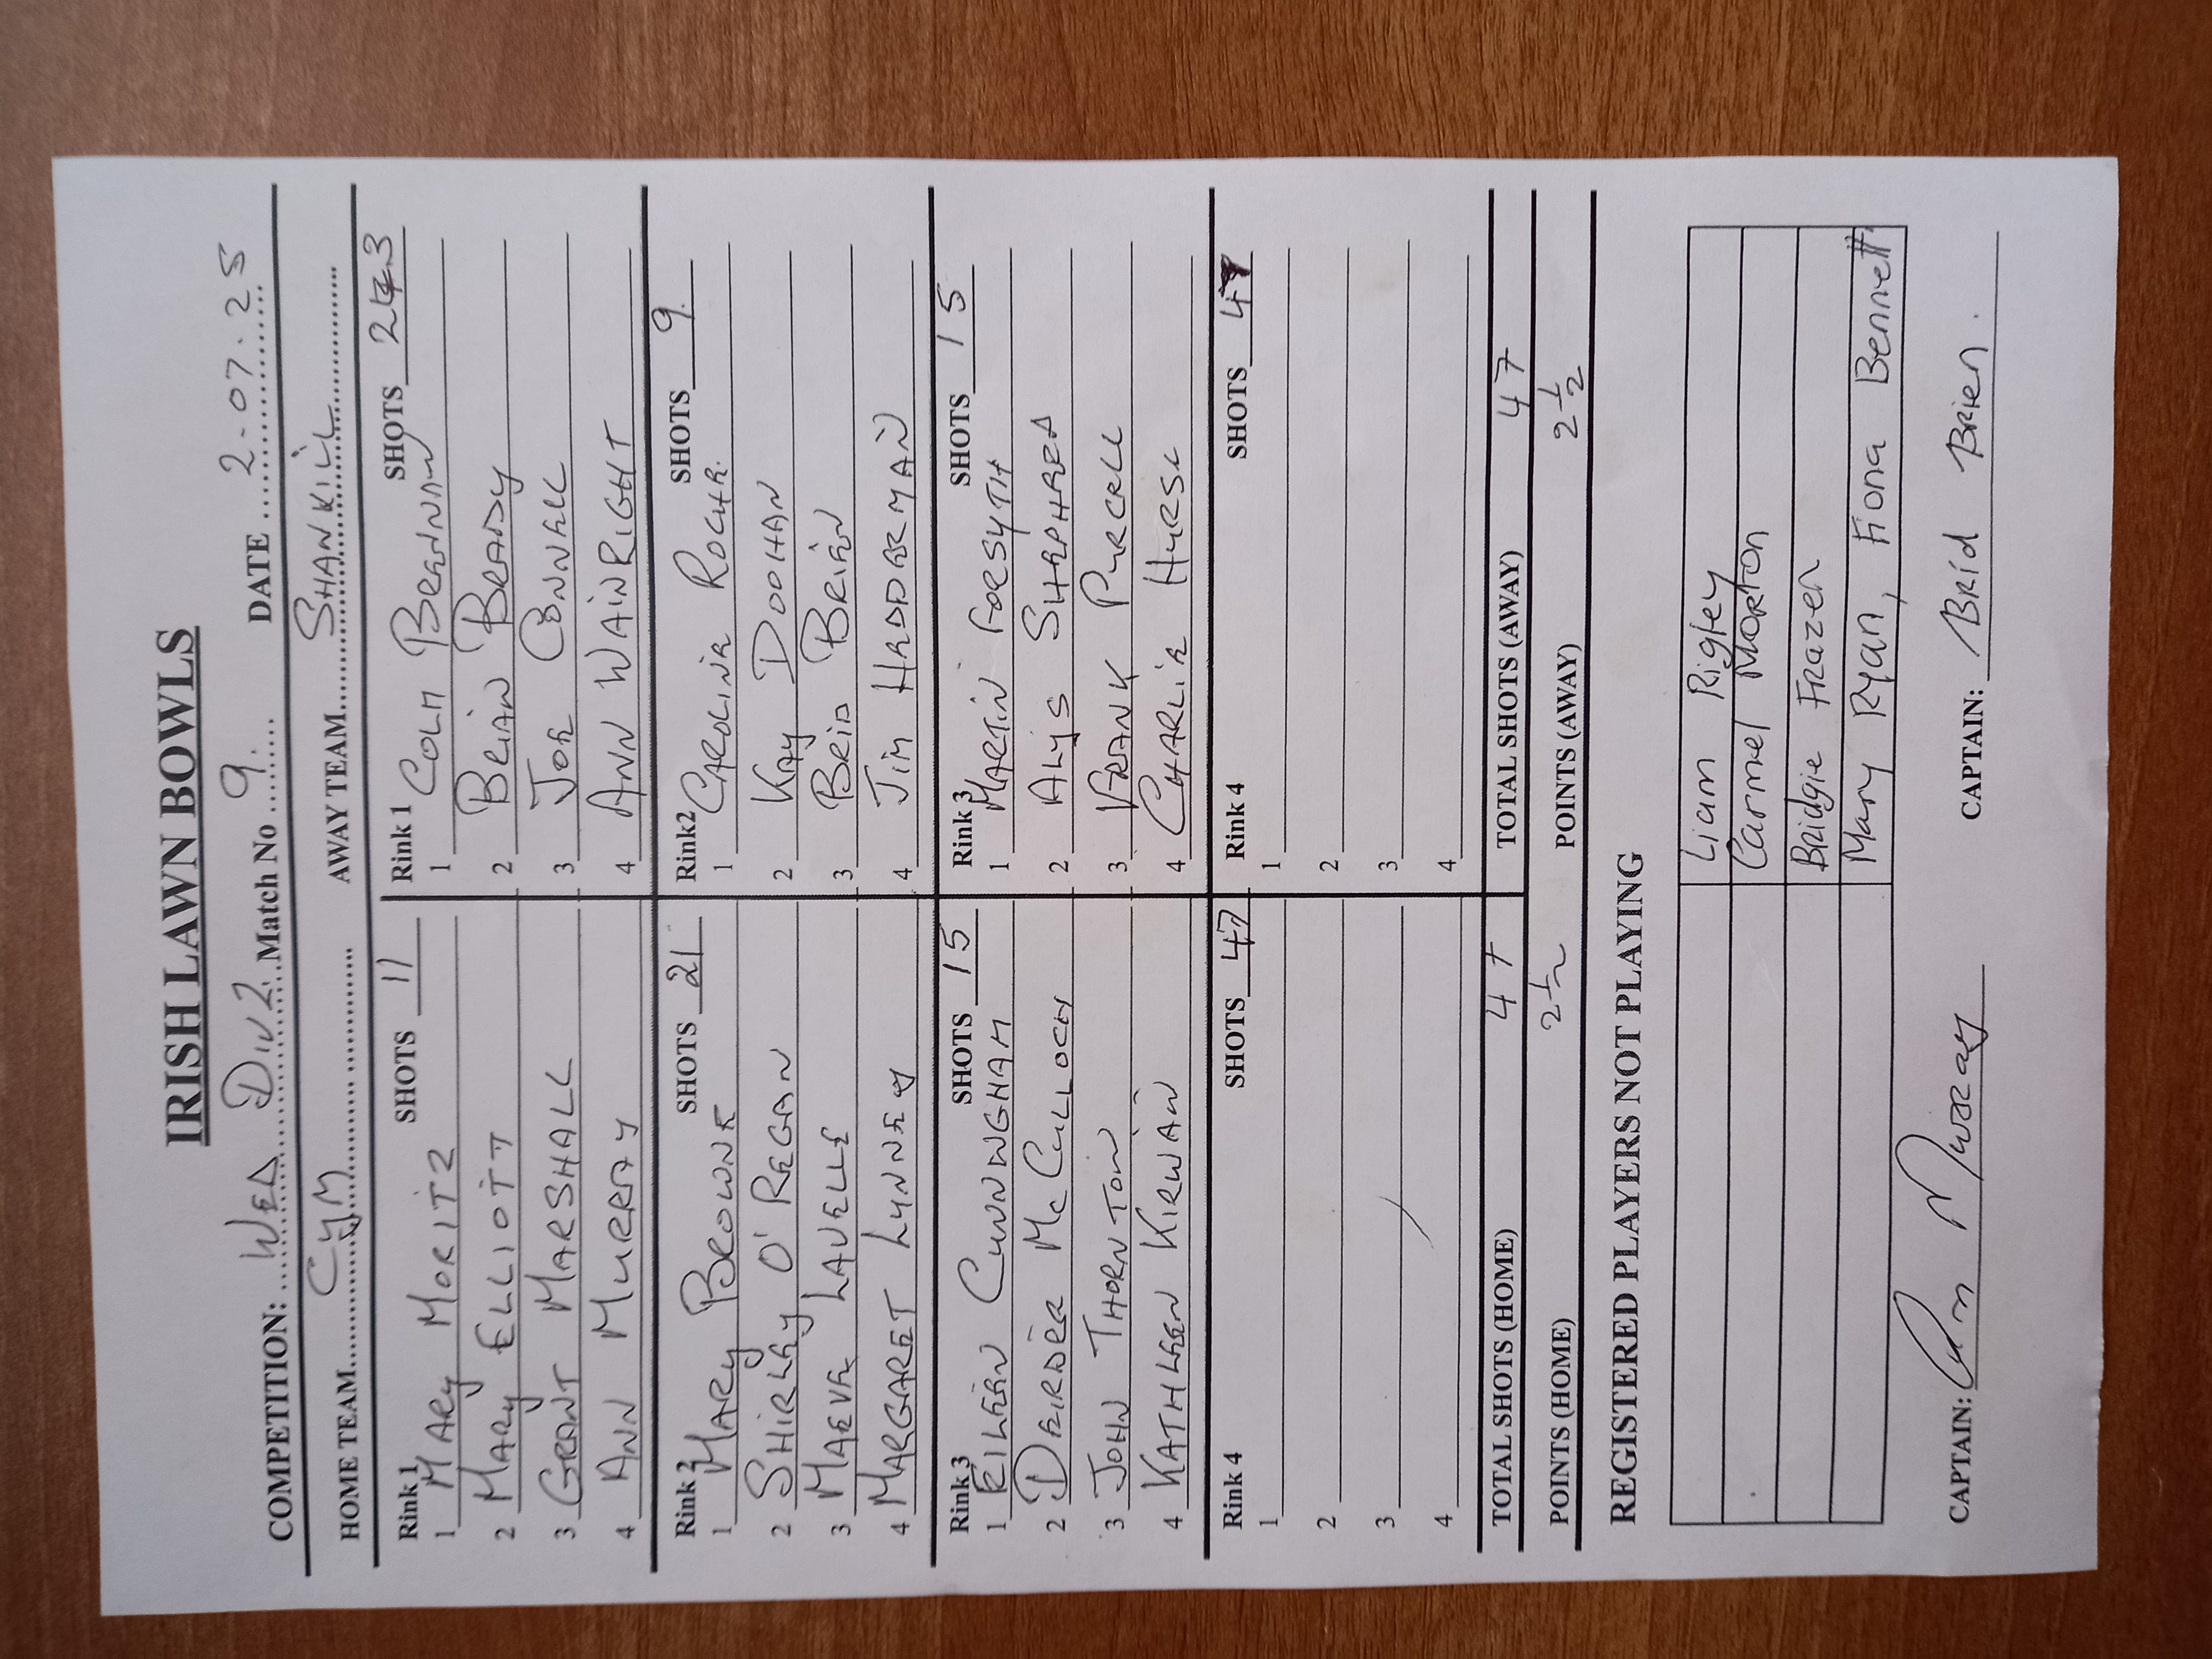 IRISH LAWN BOWLS
COMPETITION: WED DIV 2 Match No 9 DATE 2-07.25
HOME TEAM CYM AWAY TEAM SHANKILL
Rink 1 SHOTS 11
1 MARY MORITZ
2 MARY ELLIOTT
3 GRANT MARSHALL
4 ANN MURRAY
Rink 1 SHOTS 23
1 COLM BRENNAN
2 BRIAN BRADY
3 JOE CONNELL
4 ANN WAINRIGHT
Rink 2 SHOTS 21
1 MARY BROWNE
2 SHIRLEY O'REGAN
3 MAEVE LAVELLE
4 MARGARET LYNNEY
Rink2 SHOTS 9
1 CAROLINE ROCHE
2 KAY DOOHAN
3 BRID BRIEN
4 JIM HADDERMAN
Rink 3 SHOTS 15
1 EILEEN CUNNINGHAM
2 DEIRDRE McCULLOCH
3 JOHN THORNTON
4 KATHLEEN KIRWAN
Rink 3 SHOTS 15
1 MARTIN FORSYTH
2 ALYS SHEPHERD
3 FRANK PURCELL
4 CHARLIE
Rink 4 SHOTS 47
1
2
3
4
Rink 4 SHOTS 47
1
2
3
4
TOTAL SHOTS (HOME) 47 TOTAL SHOTS (AWAY) 47
POINTS (HOME) 2 1/2 POINTS (AWAY) 2 1/2
REGISTERED PLAYERS NOT PLAYING
Liam Rigley
Carmel Morton
Bridgie Frazer
Mary Ryan, Fiona Bennett
CAPTAIN: Ann Murray CAPTAIN: Bríd Brien.